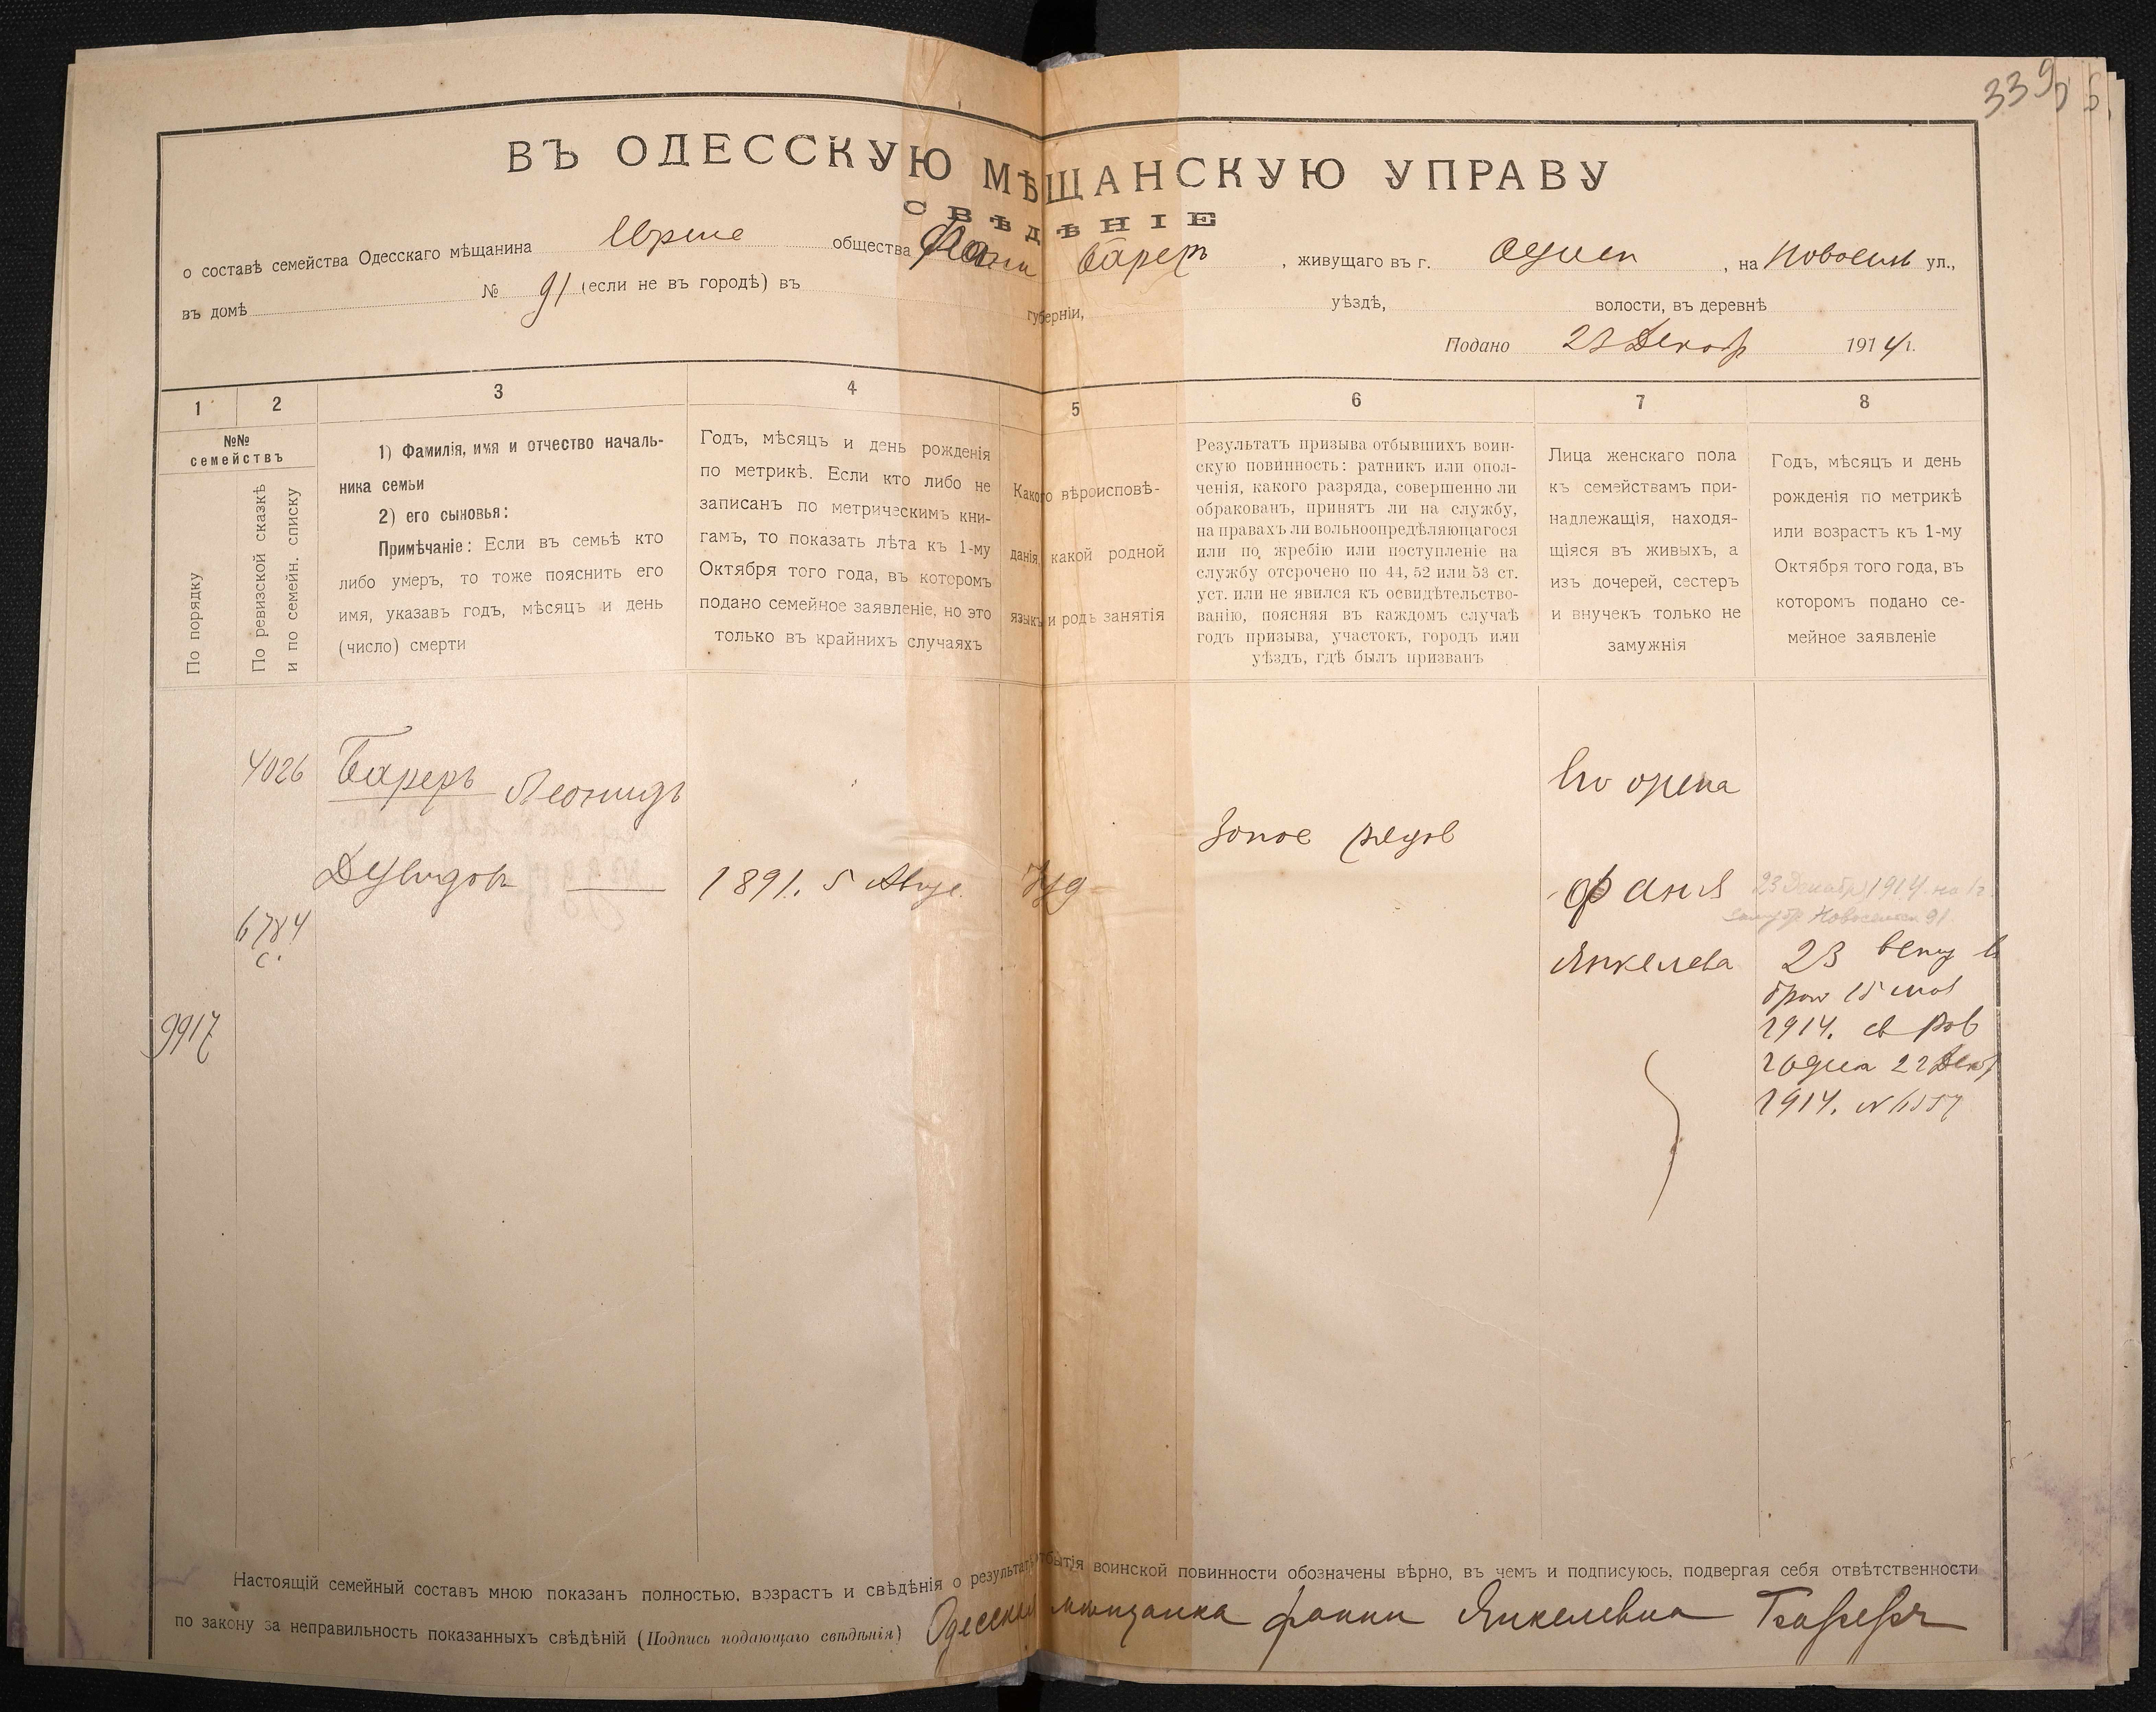 339
ВЪ ОДЕССКУЮ МѢЩАНСКУЮ УПРАВУ
СВѢДѢНІЕ
о составѣ семейства Одесскаго мѣщанина общества Фани Барер , живущаго въ г. Одесси , на Новосел ул.,
въ домѣ № 91 (если не въ городѣ) въ губерніи, уѣздѣ, волости, въ деревнѣ
Подано 23 Декаб 1914 г.
1 2 3 4 5 6 7 8
№№
семействъ
По порядку
По ревизской сказкѣ
и по семейн. списку
1) Фамилія, имя и отчество началь-
ника семьи
2) его сыновья:
Примѣчаніе: Если въ семьѣ кто
либо умеръ, то тоже пояснить его
имя, указавъ годъ, мѣсяцъ и день
(число) смерти
Годъ, мѣсяцъ и день рожденія
по метрикѣ. Если кто либо не
записанъ по метрическимъ кни-
гамъ, то показать лѣта къ 1-му
Октября того года, въ которомъ
подано семейное заявленіе, но это
только въ крайнихъ случаяхъ
Какого вѣроисповѣ-
данія, какой родной
языкъ и родъ занятія
Результатъ призыва отбывшихъ воин-
скую повинность: ратникъ или опол-
ченія, какого разряда, совершенно ли
обракованъ, принятъ ли на службу,
на правахъ ли вольноопредѣляющагося
или по жребію или поступленіе на
службу отсрочено по 44, 52 или 53 ст.
уст. или не явился къ освидѣтельство-
ванію, поясняя въ каждомъ случаѣ
годъ призыва, участокъ, городъ или
уѣздъ, гдѣ былъ призванъ
Лица женскаго пола
къ семействамъ при-
надлежащія, находя-
щіяся въ живыхъ, а
изъ дочерей, сестеръ
и внучекъ только не
замужнія
Годъ, мѣсяцъ и день
рожденія по метрикѣ
или возрастъ къ 1-му
Октября того года, въ
которомъ подано се-
мейное заявленіе
4026 Бареръ Леонидъ
Его
Дувидов 1891. 5 Авгус. Іуд
Фаня 23 Декабр 1914 на
Новосельск 91
6784
с.
Янкелева 23 вступ в
брак 15
1914.
9917
22 Декаб
1914. №
Настоящій семейный составъ мною показанъ полностью, возрастъ и свѣдѣнія о результатѣ отбытія воинской повинности обозначены вѣрно, въ чемъ и подписуюсь, подвергая себя отвѣтственности
по закону за неправильность показанныхъ свѣдѣній (Подпись подающаго свѣдѣнія) Одесская мещанка Фанни Янкелевна Барерь